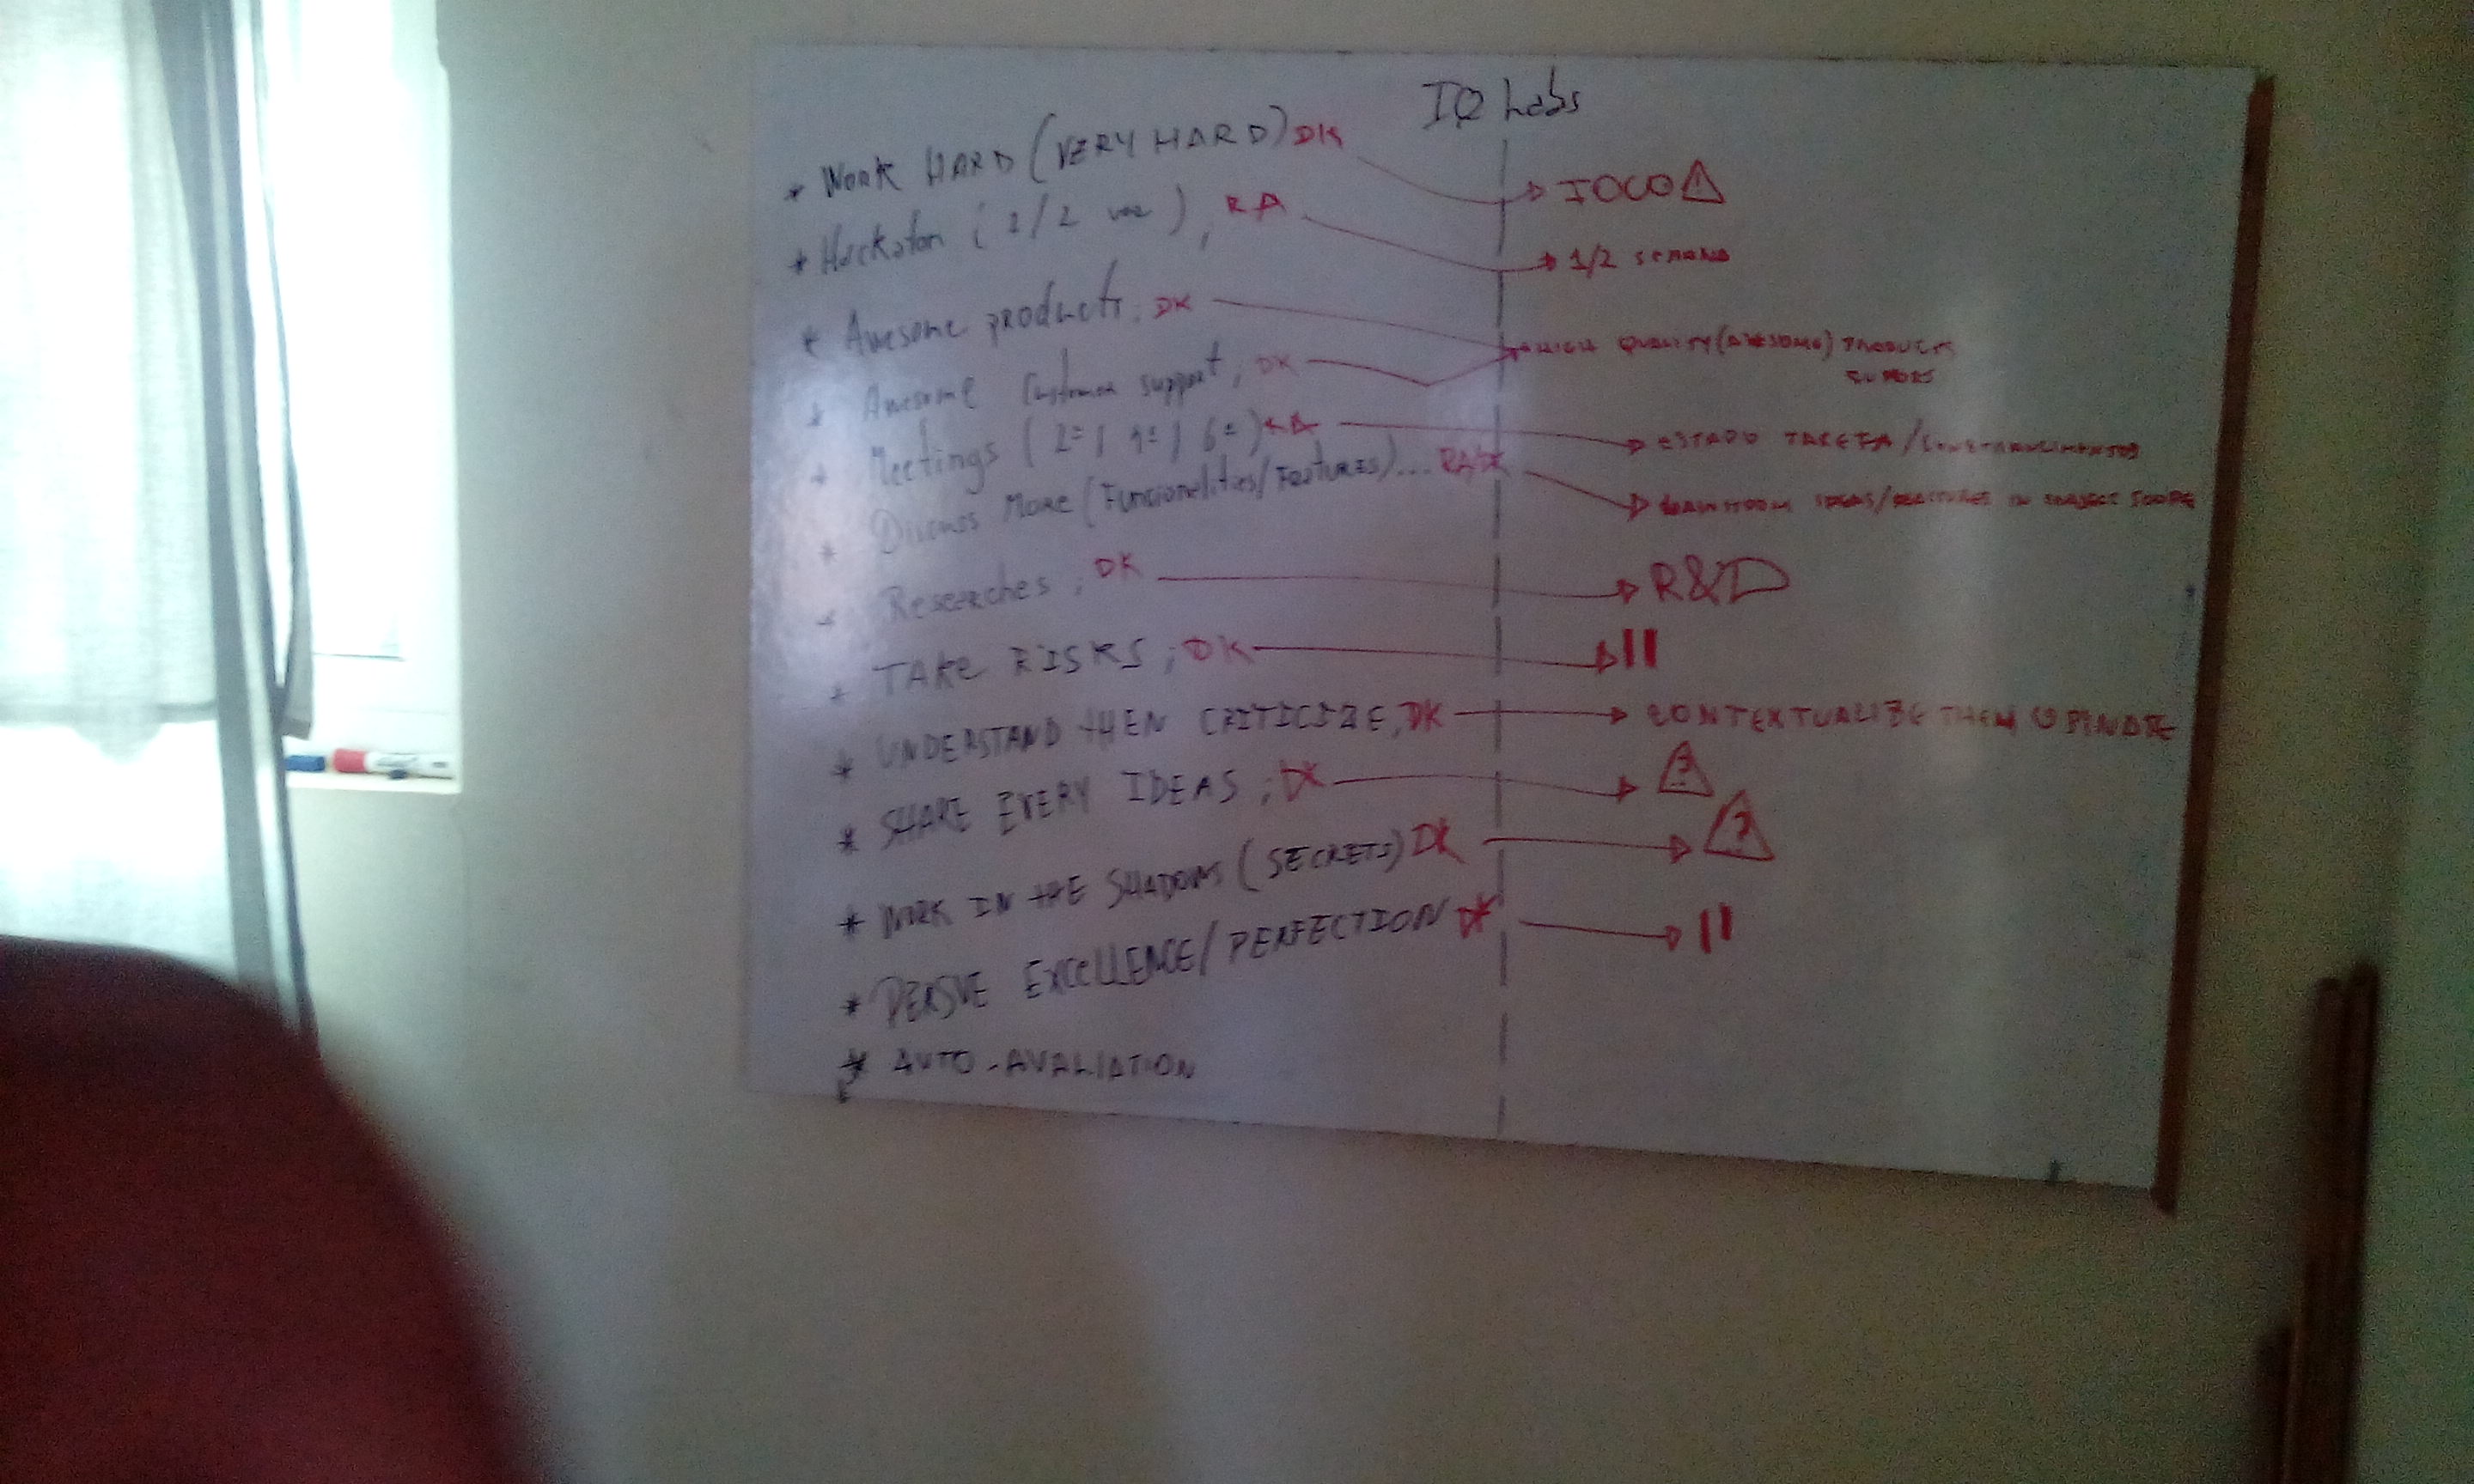 IQ Labs
* WORK HARD (VERY HARD) DK → IOCO
* Hackaton (1/2 ), RA → 1/2 SEMANA
* Awesome products; DK → HIGH QUALITY (AWESOME) PRODUCTS
* Awesome Customer support; DK
* Meetings (2ª | 4ª | 6ª) RA → ESTADO TAREFA/
* Discuss More (Funcionalities/Features)... RA/DK → IDEAS/FEATURES IN SUBJECT SCOPE
* Researches; DK → R&D
* TAKE RISKS; DK → II
* UNDERSTAND THEN CRITICIZE, DK → CONTEXTUALIZE THEM OPINATE
* SHARE EVERY IDEAS; DK → ?
* WORK IN THE SHADOWS (SECRETS) DK → ?
* PERSUE EXCELLENCE/PERFECTION DK → II
* AUTO-AVALIATION